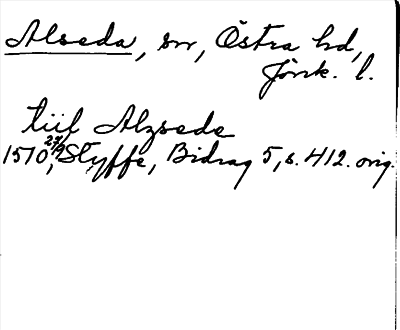 Alseda, sn, Östra hd,
Jönk. l.
tiil Alzsede
1510 27/9, Styffe, Bidrag 5, s. 412. orig.